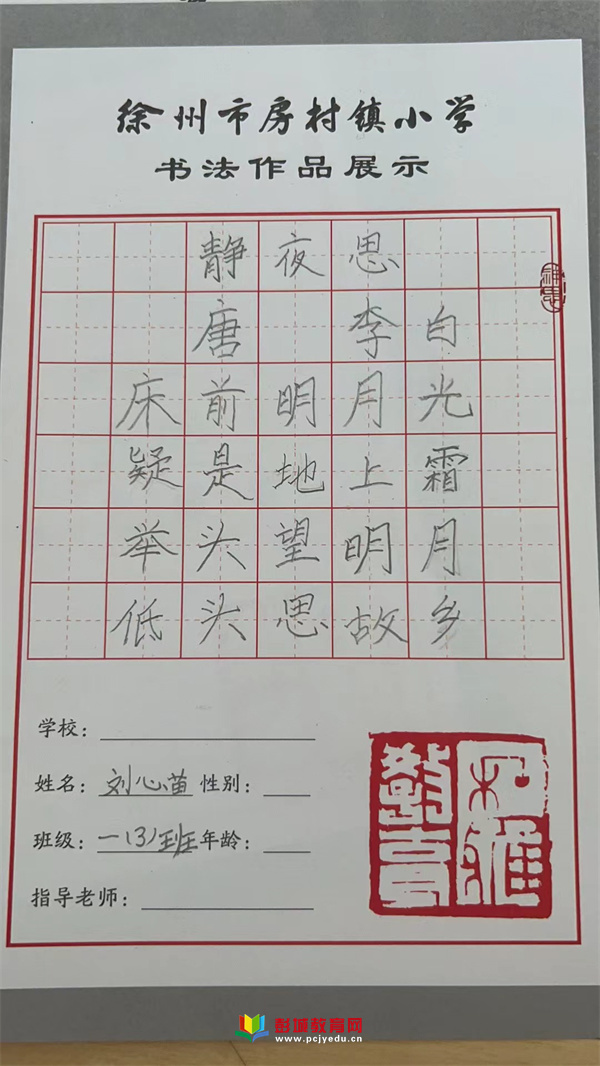 徐州市房村镇小学
书法作品展示
静夜思
唐 李白
床前明月光
疑是地上霜
举头望明月
低头思故乡
学校：
姓名：刘心苗 性别：
班级：一（3）班 年龄：
指导老师：
彭城教育网
www.pcjyedu.cn